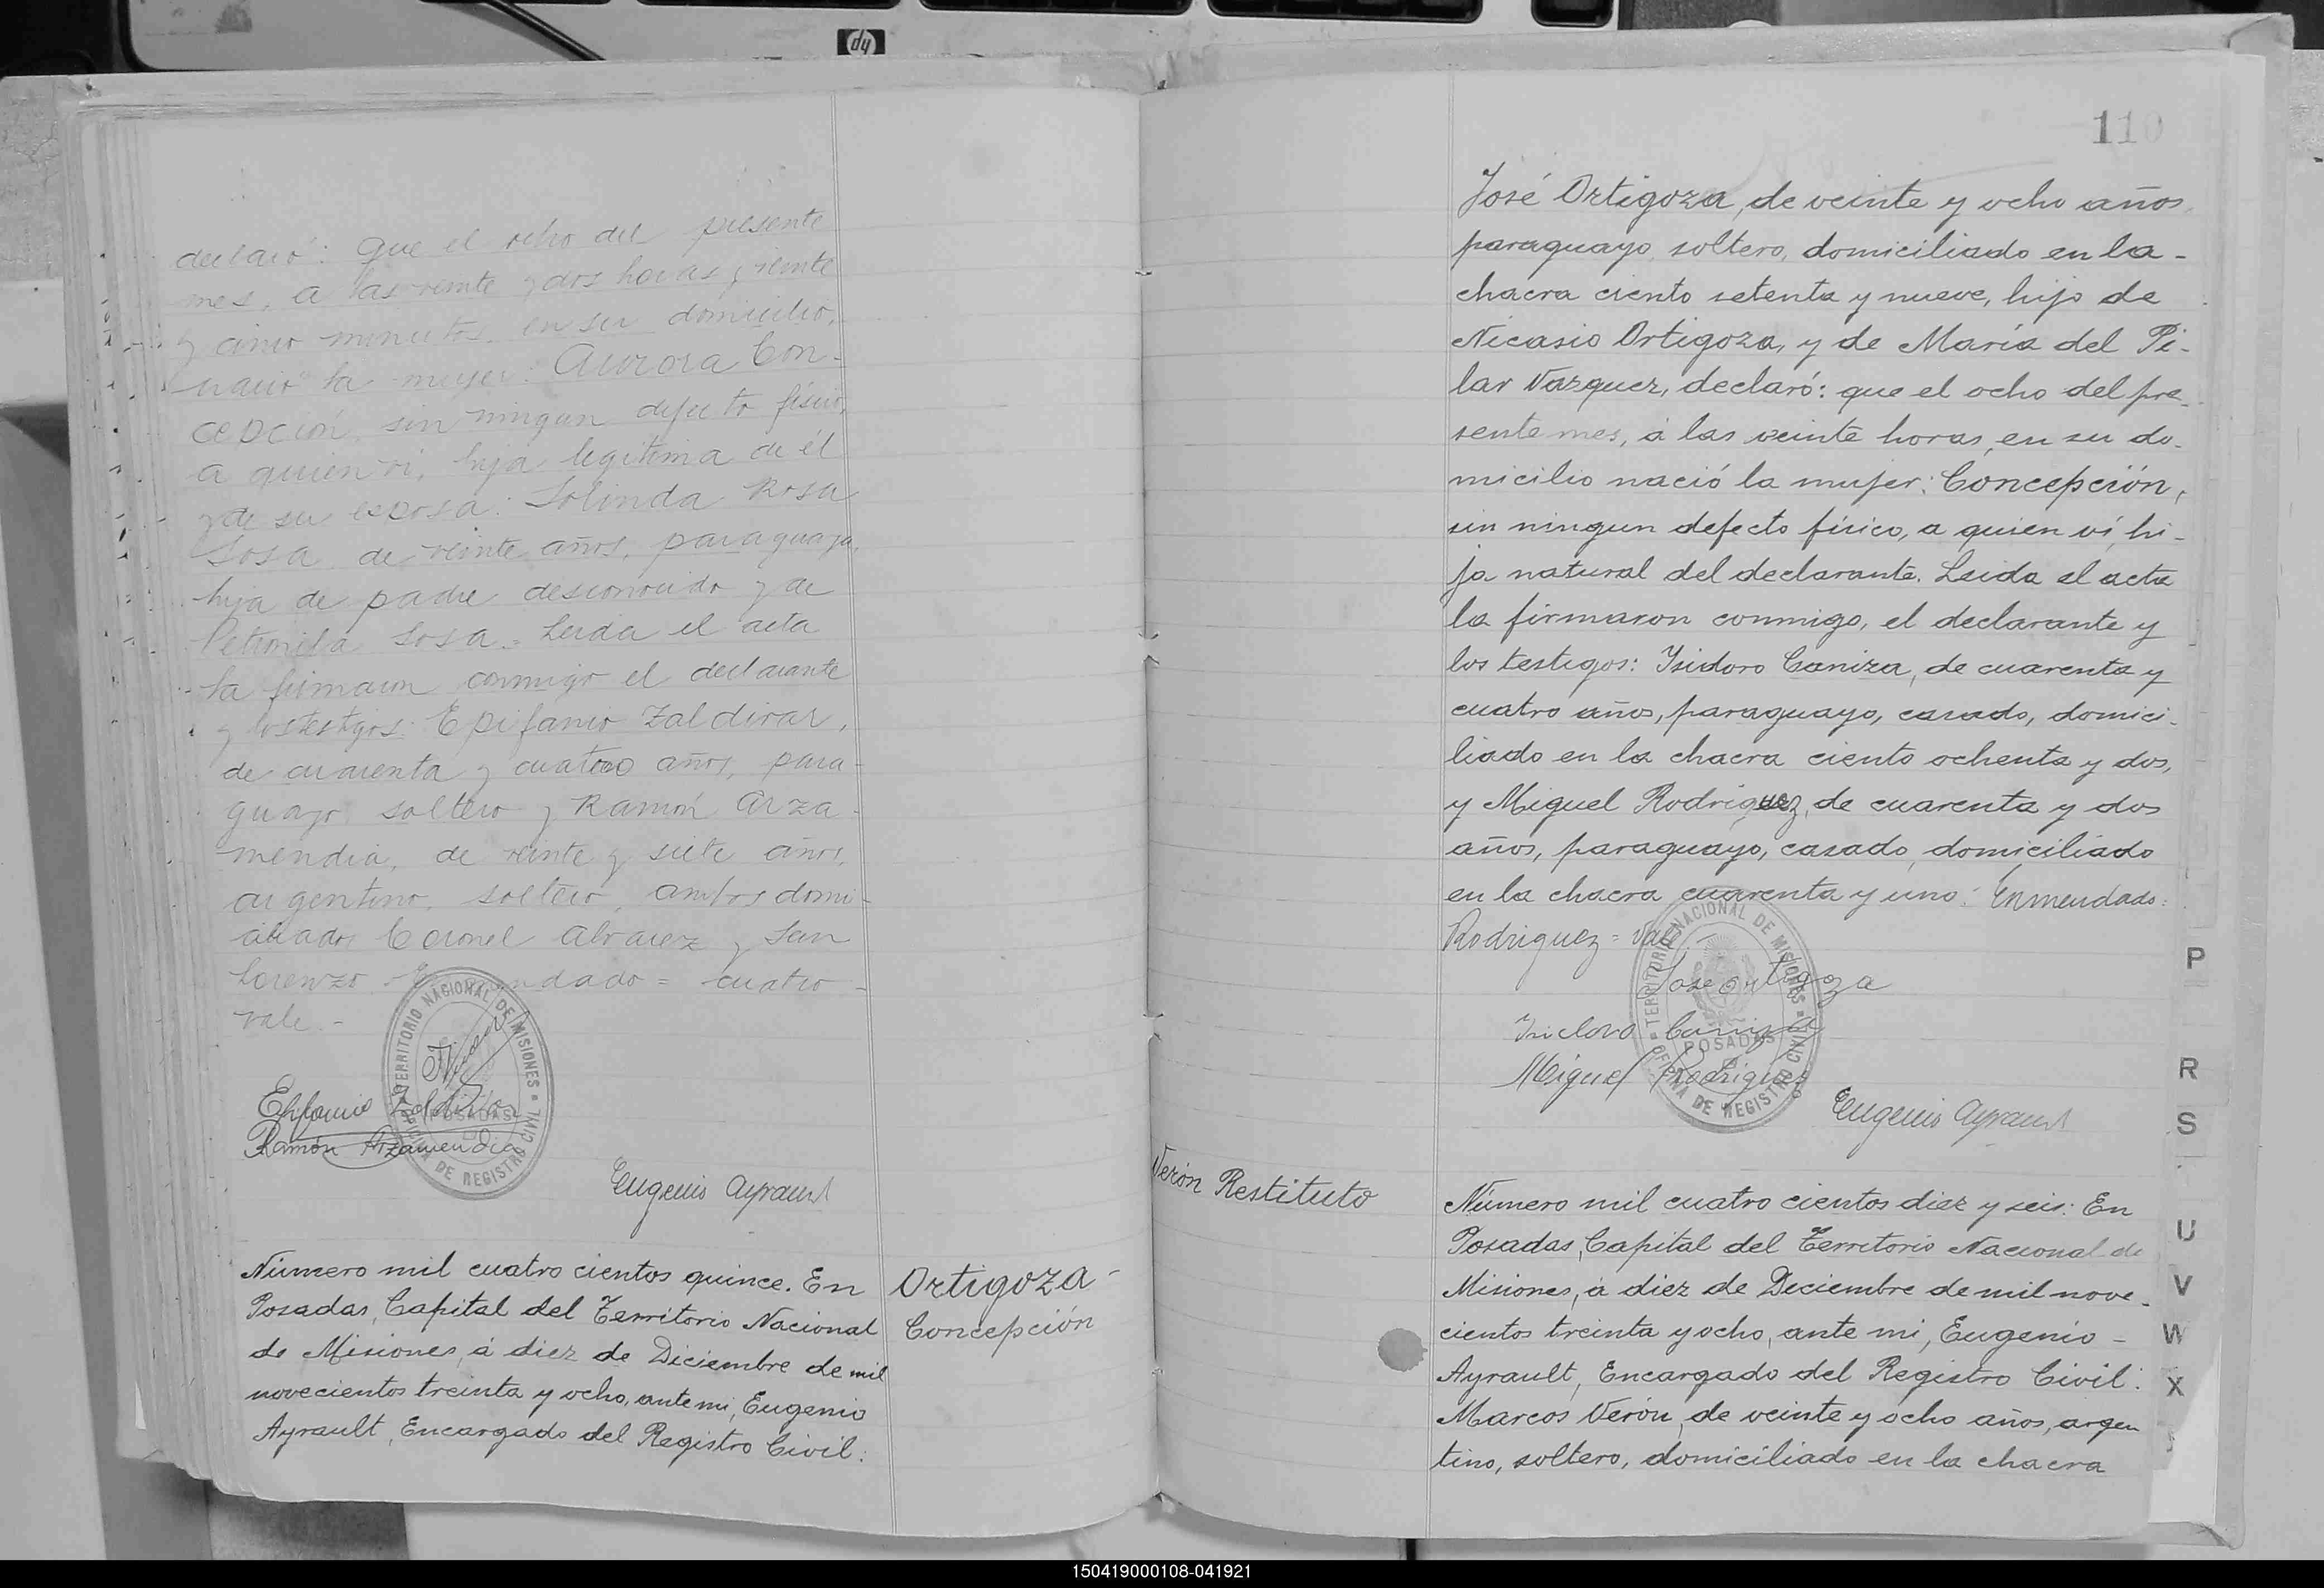 hp
declaró: que el ocho del presente
mes, a las veinte y dos horas y veinte
y cinco minutos, en su domicilio,
nació la mujer: Aurora Con-
cepción, sin ningun defecto físico,
a quien ví, hija legítima de él
y de su esposa: Solinda Rosa
Sosa, de veinte años, paraguaya,
hija de padre desconocido y de
Petronila Sosa. Leida el acta
la firmaron conmigo el declarante
y los testigos: Epifanio Zaldivar,
de cuarenta y cuatro años, para-
guayo, soltero y Ramón Arza-
mendia, de veinte y siete años,
argentino, soltero, ambos domi-
ciliados Coronel Alvarez y San
Lorenzo - Enmendado = cuatro -
vale. -
TERRITORIO NACIONAL DE MISIONES
POSADAS
OFICINA DE REGISTRO CIVIL
Epifanio Zaldivar
Ramón Arzamendia
Eugenio Ayrault
Número mil cuatro cientos quince. En
Posadas, Capital del Territorio Nacional
de Misiones, á diez de Diciembre de mil
novecientos treinta y ocho, ante mi, Eugenio
Ayrault, Encargado del Registro Civil:
Ortigoza-
Concepción
110
José Ortigoza, de veinte y ocho años,
paraguayo, soltero, domiciliado en la-
chacra ciento setenta y nueve, hijo de
Nicasio Ortigoza, y de María del Pi-
lar Vazquez, declaró: que el ocho del pre-
sente mes, á las veinte horas, en su do-
micilio nació la mujer: Concepción,
sin ningun defecto físico, a quien ví, hi-
ja natural del declarante. Leida el acta
la firmaron conmigo, el declarante y
los testigos: Isidoro Caniza, de cuarenta y
cuatro años, paraguayo, casado, domici-
liado en la chacra ciento ochenta y dos,
y Miguel Rodriguez, de cuarenta y dos
años, paraguayo, casado, domiciliado
en la chacra cuarenta y uno. Enmendado:
Rodriguez = vale. -
TERRITORIO NACIONAL DE MISIONES
POSADAS
OFICINA DE REGISTRO CIVIL
Jose ortigoza
Isidoro Caniza
Miguel Rodriguez
Eugenio Ayrault
Verón Restituto
Número mil cuatro cientos diez y seis: En
Posadas, Capital del Territorio Nacional de
Misiones, á diez de Diciembre de mil nove-
cientos treinta y ocho, ante mi, Eugenio -
Ayrault, Encargado del Registro Civil:
Marcos Verón, de veinte y ocho años, argen
tino, soltero, domiciliado en la chacra
P
R
S
U
V
W
X
150419000108-041921